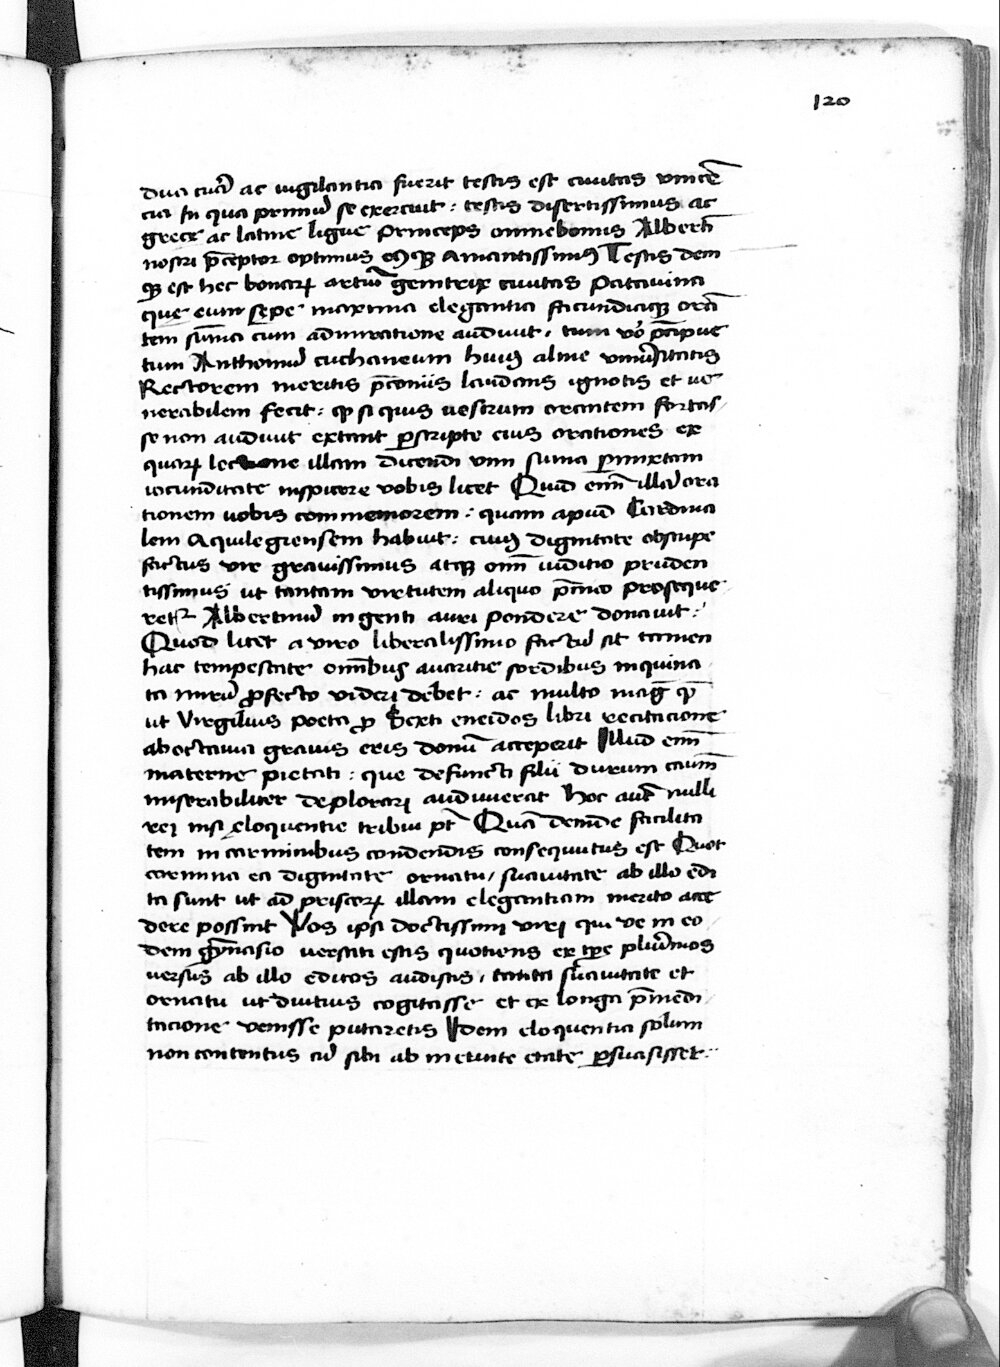 120
dua cura ac uigilantia fuerit testis est ciuitas vincē
cia In qua primū se exercuit: testis disertissimus ac
grece ac latine ligue princeps omnebonus Alberti
nostri p̄ceptor optimus eiꝰqꝫ amantissimꝰ Testis dem
qꝫ est hec bonarꝝ artiū genitrix ciuitas Patauina
que eum sepe maxima elegantia facundiaqꝫ orā
tem sūma cum admiratione audiuit. tum vō p̄cipue
tum Anthoniū cuchaneum huiꝰ alme vniūsitatis
Rectorem meritis p̄coniis laudans ignotis et ue
nerabilem fecit: qꝫ si quis uestrum orantem fortas
se non audiuit extant ꝑscripte eius orationes ex
quarꝝ lectione illam dicendi vim suma ꝑmixtam
iocunditate inspicere vobis licet Quid enī illā ora
tionem uobis commemorem: quam apud Cardina
lem Aquilegiensem habuit: cuiꝰ dignitate obstupe
factus vir grauissimus atqꝫ omī iuditio pruden
tissimus ut tantam virtutem aliquo p̄mio proseque
retꝛ Albertinū ingenti auri pondere donauit:
Quod licet a viro liberalissimo factū sit tamen
hac tempestate omībus auaritie sordibus inquina
ta mirū ꝓfecto videri debet: ac multo maḡ qꝫ
ut Virgilius poeta ꝓ Sexti eneidos libri recitacione
ab octauia grauis eris donū acceperit Illud enī
materne pietati: que defuncti filii durum casum
miserabiliter deplorari audiuerat hoc autē nulli
rei nisi eloquentie tribui pt̄ Quā deinde facilita
tem in carminibus condendis consequutus est Quot
carmina ea dignitate ornatu / suauitate ab illo edi
ta sunt ut ad priscorꝝ illam elegantiam merito acce
dere possint Vos ipsi doctissimi viri qui ue in eo
dem gȳnasio uersati estis quotiens ex tꝑe plurimos
versus ab illo editos audistis / tanta suauitate et
ornatu ut diutius cogitasse et ex longa p̄medi
tacione venisse putaretis Idem eloquentia solum
non contentus cū sibi ab ineunte etate ꝑsuasisset: